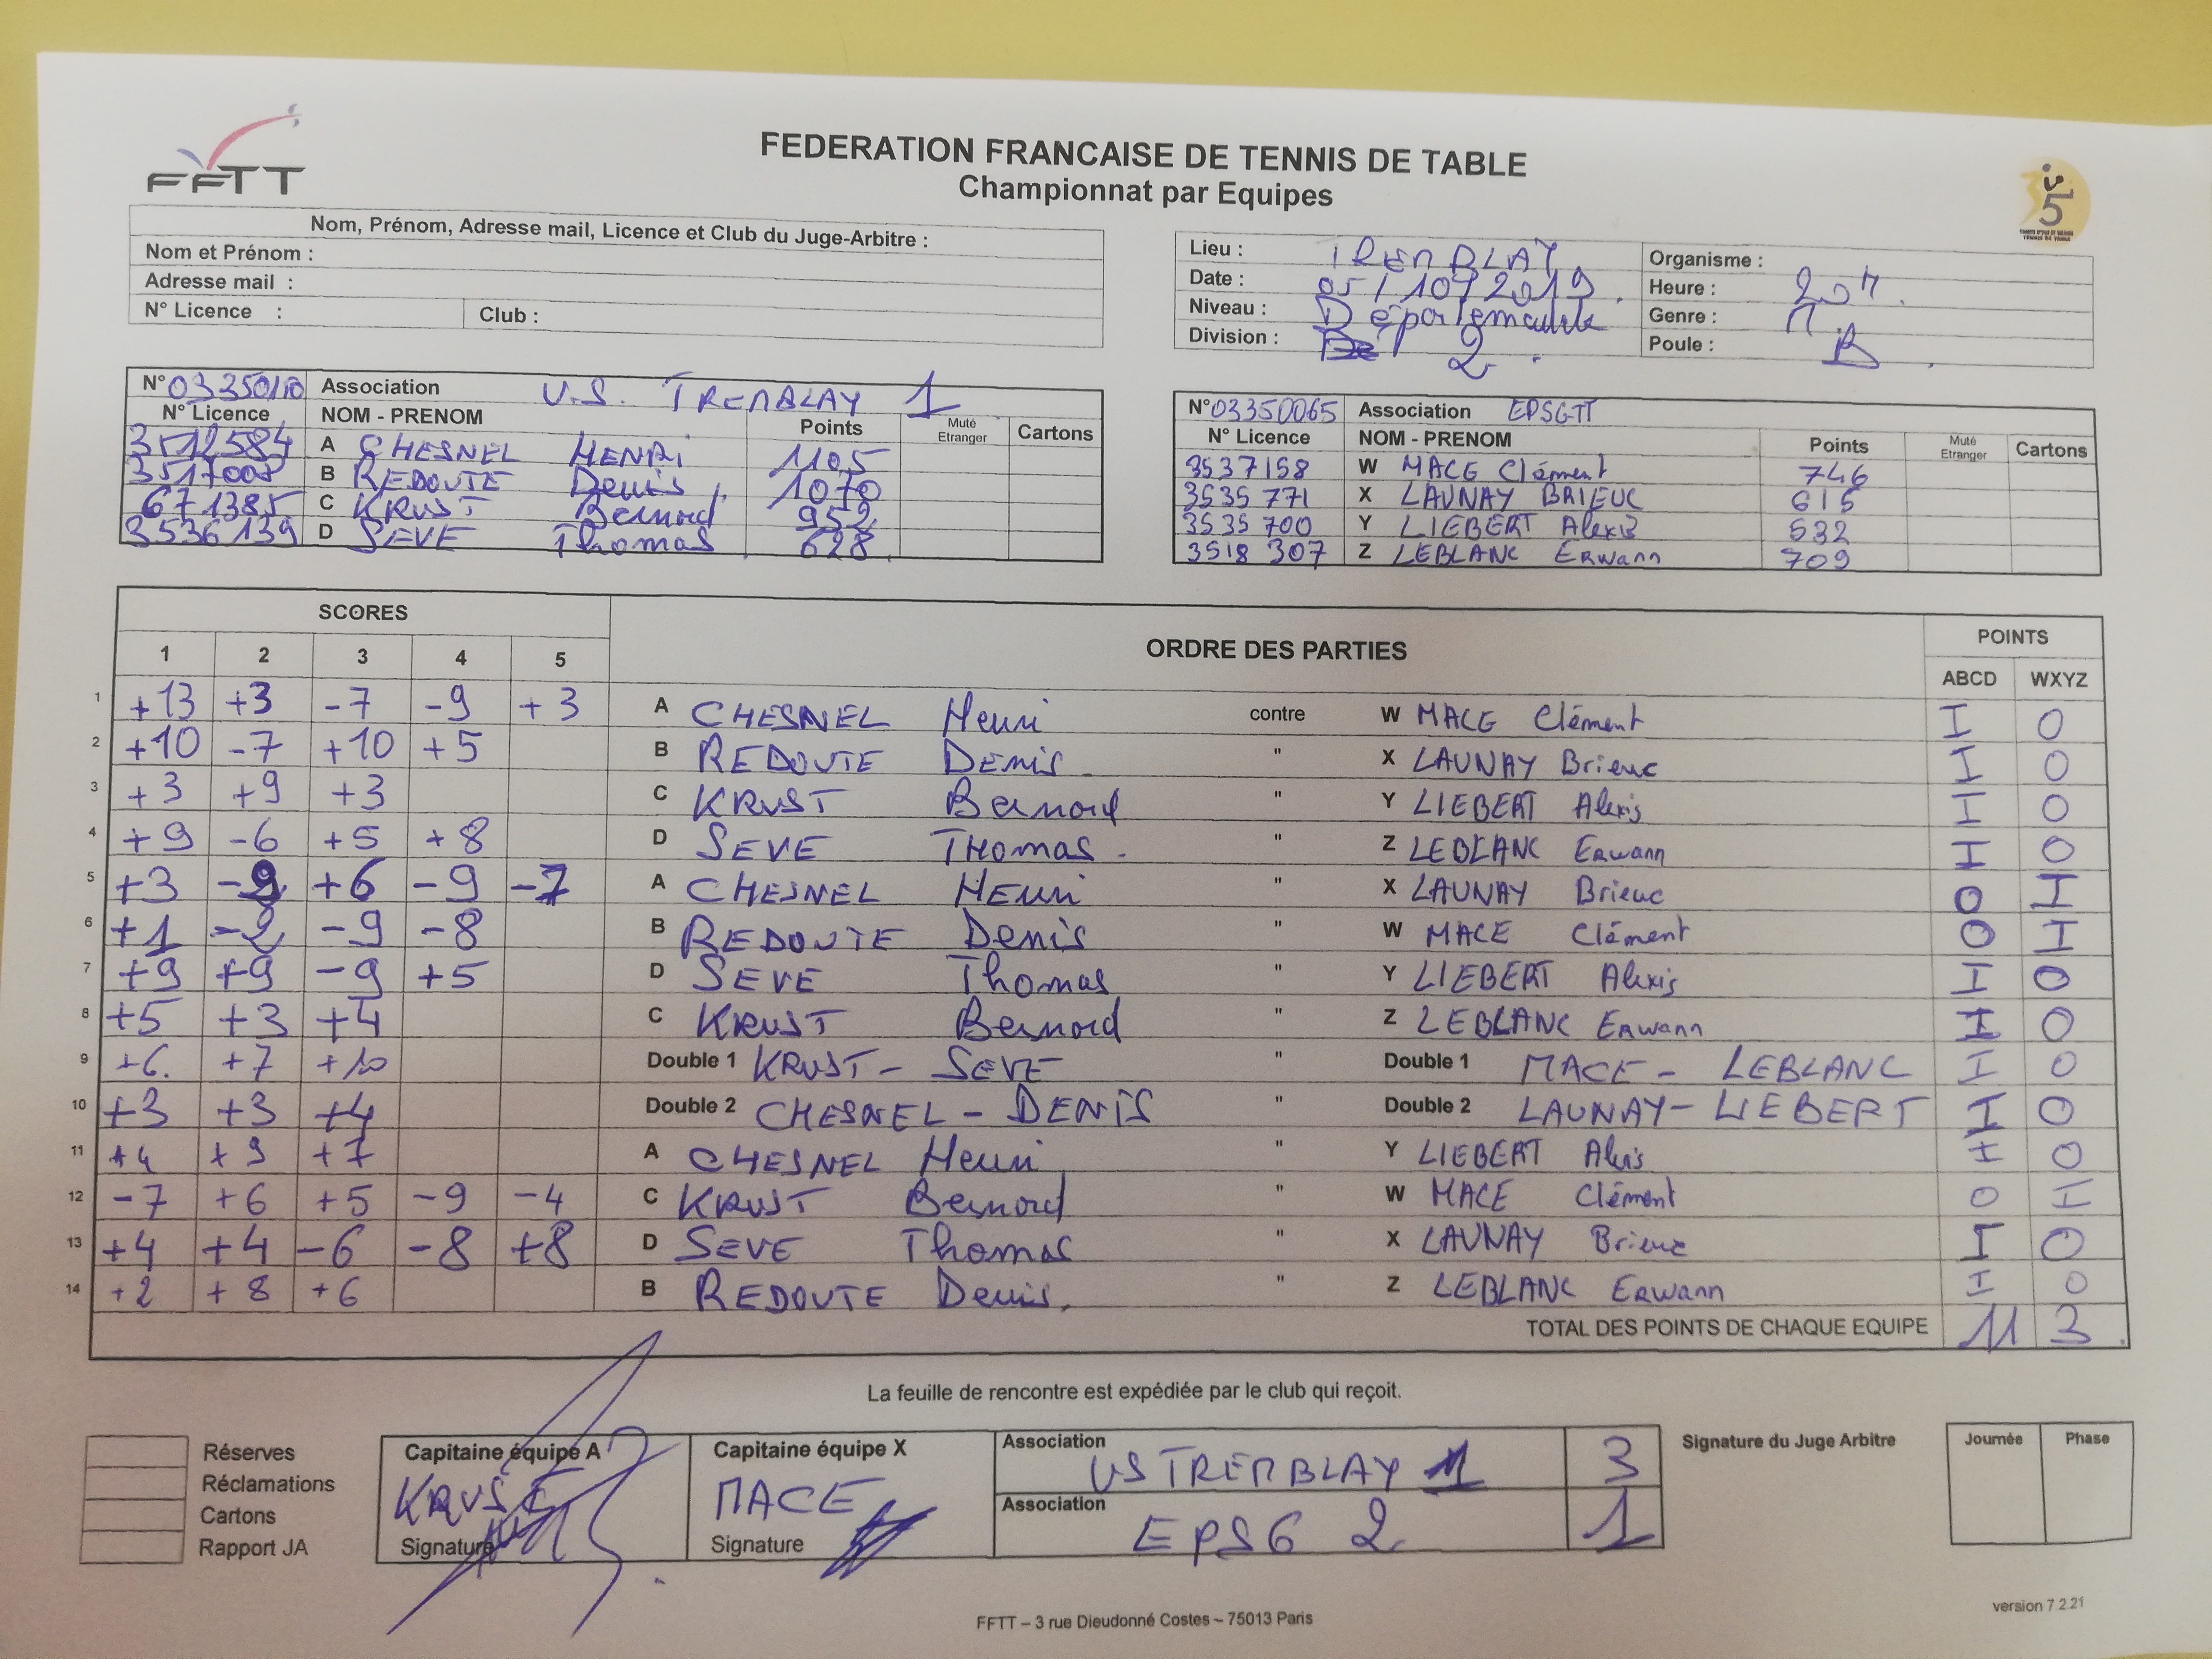 FFTT
FEDERATION FRANCAISE DE TENNIS DE TABLE
Championnat par Equipes
Nom, Prénom, Adresse mail, Licence et Club du Juge-Arbitre :
Nom et Prénom :
Adresse mail :
N° Licence : Club :
Lieu : TREMBLAY Organisme :
Date : 05/10/2019 Heure : 20H
Niveau : Départementale Genre : M
Division : 2 Poule : B
N° 03350110 Association U.S. TREMBLAY 1
N° Licence NOM - PRENOM Points Muté Etranger Cartons
3512584 A CHESNEL HENRI 1105
3517008 B REDOUTE Denis 1070
671385 C KRUST Bernard 952
3536139 D SEVE Thomas 628
N° 03350065 Association EPSGTT
N° Licence NOM - PRENOM Points Muté Etranger Cartons
3537158 W MACE Clément 746
3535 771 X LAUNAY BRIEUC 615
3535 700 Y LIEBERT Alexis 532
3518 307 Z LEBLANC Erwann 709
SCORES ORDRE DES PARTIES POINTS
1 2 3 4 5 ABCD WXYZ
1 +13 +3 -7 -9 +3 A CHESNEL Henri contre W MACE Clément I O
2 +10 -7 +10 +5 B REDOUTE DENis " X LAUNAY Brieuc I O
3 +3 +9 +3 C KRUST Bernard " Y LIEBERT Alexis I O
4 +9 -6 +5 +8 D SEVE THomas " Z LEBLANC Erwann I O
5 +3 -9 +6 -9 -7 A CHESNEL HEnri " X LAUNAY Brieuc O I
6 +1 -2 -9 -8 B REDOUTE Denis " W MACE Clément O I
7 +9 +9 -9 +5 D SEVE Thomas " Y LIEBERT Alexis I O
8 +5 +3 +4 C KRUST Bernard " Z LEBLANC Erwann I O
9 +6 +7 +10 Double 1 KRUST - SEVE " Double 1 MACE - LEBLANC I O
10 +3 +3 +4 Double 2 CHESNEL - DENIS " Double 2 LAUNAY - LIEBERT I O
11 +4 +9 +7 A CHESNEL Henri " Y LIEBERT Alexis I O
12 -7 +6 +5 -9 -4 C KRUST Bernard " W MACE Clément O I
13 +4 +4 -6 -8 +8 D SEVE Thomas " X LAUNAY Brieuc I O
14 +2 +8 +6 B REDOUTE Denis " Z LEBLANC Erwann I O
TOTAL DES POINTS DE CHAQUE EQUIPE 11 3
La feuille de rencontre est expédiée par le club qui reçoit.
Réserves
Réclamations
Cartons
Rapport JA
Capitaine équipe A
KRUST
Signature
Capitaine équipe X
MACE
Signature
Association US TREMBLAY 1 3
Association EPSG 2 1
Signature du Juge Arbitre
Journée Phase
version 7.2.21
FFTT – 3 rue Dieudonné Costes – 75013 Paris